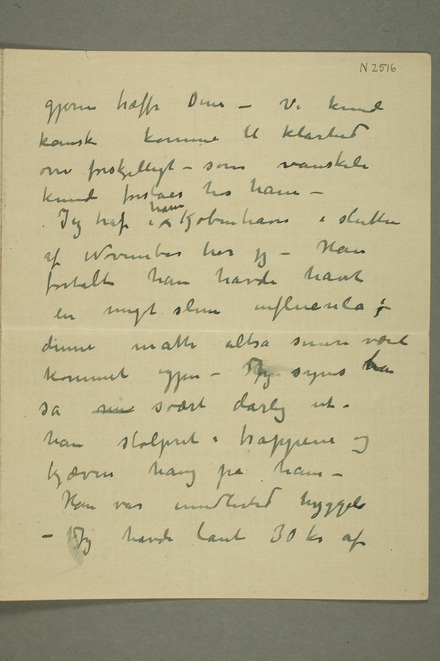 N 2516
gjerne træffe Dem – Vi kunde
kanske komme til klarhed
over forskjelligt – som vanskeli
kunde forstaaes hos ham –
Jeg traf ham i Kjøbenhavn i slutten
af November tror jeg – Han
fortalte han havde havt
en meget slem influensa ;
denne måtte altså snare være
kommet igjen – Jeg syns han
så svært dårlig ut –
han stolpret i trappene og
kjæven hang på ham –
Han var imidlertid hyggeli
– Jeg havde lånt 30 kr af